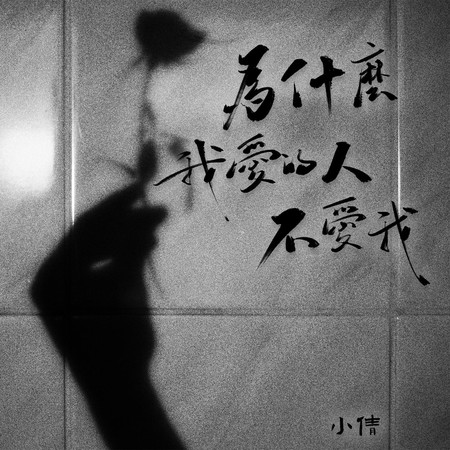 為什麼
我愛的人
不愛我
小倩